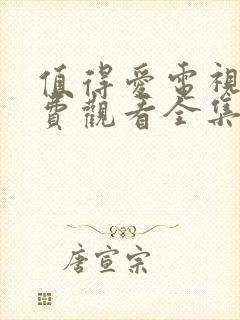 值得愛電視
費觀看全集
唐宣宗